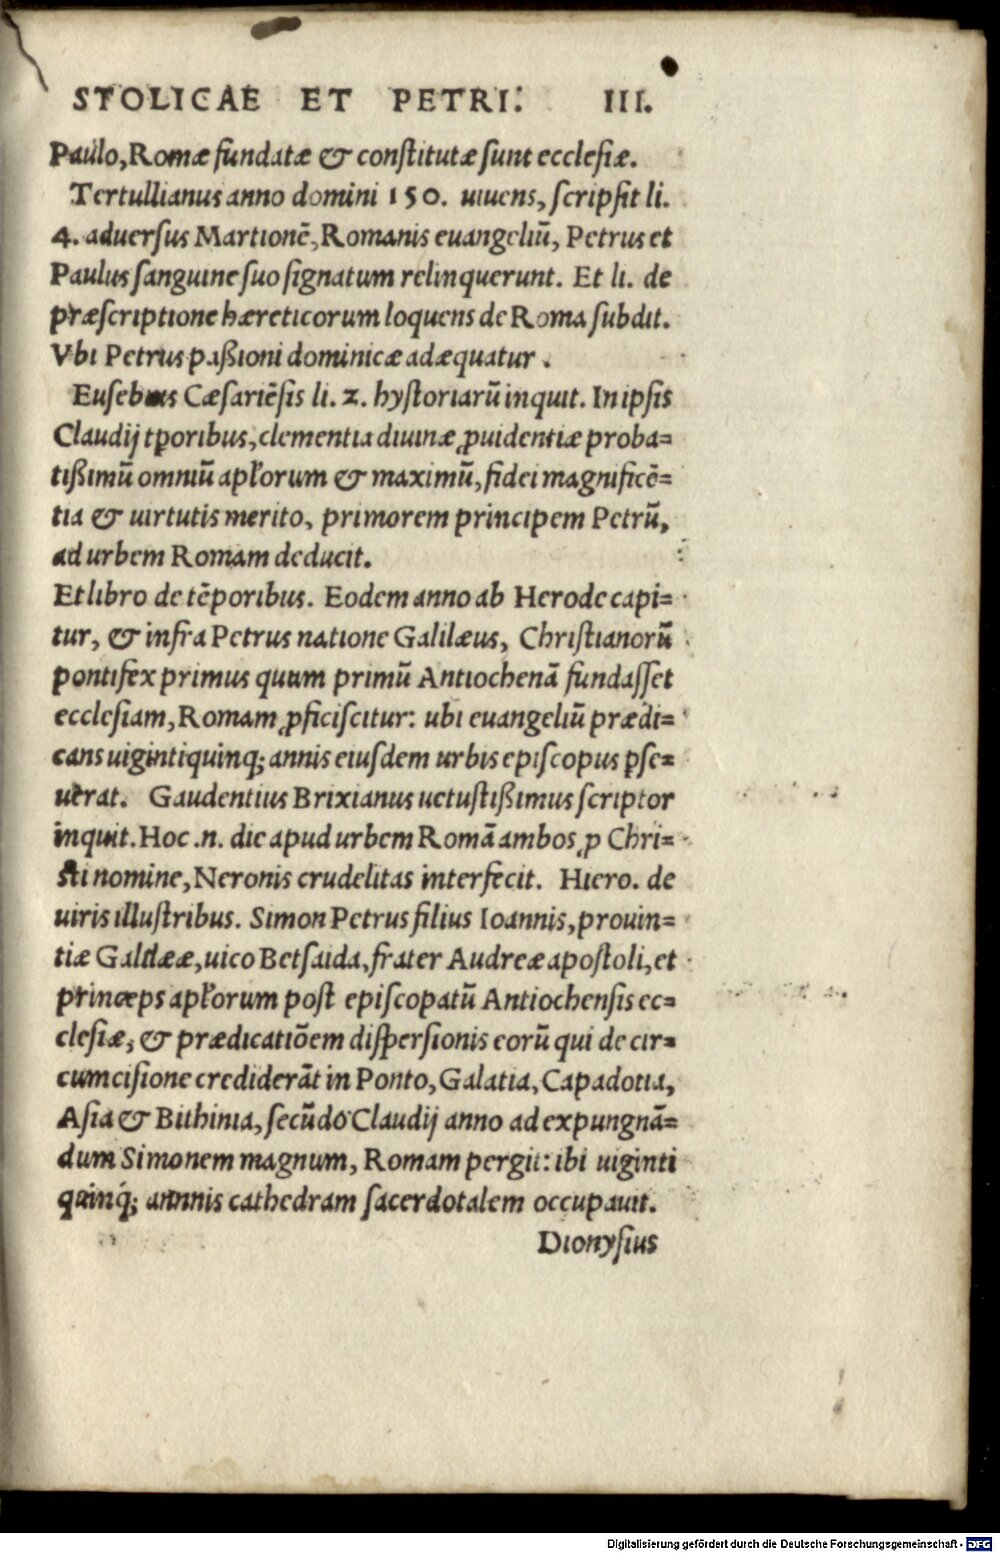 STOLICAE ET PETRI. III.
Paulo, Romæ fundatæ & constitutæ sunt ecclesiæ.
Tertullianus anno domini 150. uiuens, scripsit li.
4. aduersus Martionẽ, Romanis euangeliũ, Petrus et
Paulus sanguine suo signatum relinquerunt. Et li. de
præscriptione hæreticorum loquens de Roma subdit.
Vbi Petrus paßioni dominicæ adæquatur.
Eusebius Cæsariẽsis li. 2. hystoriarũ inquit. In ipsis
Claudij tꝑoribus, clementia diuinæ ꝓuidentiæ proba=
tißimũ omniũ apľorum & maximũ, fidei magnificẽ=
tia & uirtutis merito, primorem principem Petrũ,
ad urbem Romam deducit.
Et libro de tẽporibus. Eodem anno ab Herode capi=
tur, & infra Petrus natione Galilæus, Christianorũ
pontifex primus quum primũ Antiochenã fundasset
ecclesiam, Romam ꝓficiscitur: ubi euangeliũ prædi=
cans uigintiquinq; annis eiusdem urbis episcopus ꝑse=
uerat. Gaudentius Brixianus uetustißimus scriptor
inquit. Hoc .n. die apud urbem Romã ambos ꝓ Chri=
sti nomine, Neronis crudelitas interfecit. Hiero. de
uiris illustribus. Simon Petrus filius Ioannis, prouin=
tiæ Galilææ, uico Betsaida, frater Audreæ apostoli, et
princeps apľorum post episcopatũ Antiochensis ec=
clesiæ, & prædicatiõem dispersionis eorũ qui de cir=
cumcisione crediderãt in Ponto, Galatia, Capadotia,
Asia & Bithinia, secũdo Claudij anno ad expungnã=
dum Simonem magnum, Romam pergit: ibi uiginti
quinq́; annnis cathedram sacerdotalem occupauit.
Dionysius
Digitalisierung gefördert durch die Deutsche Forschungsgemeinschaft - DFG